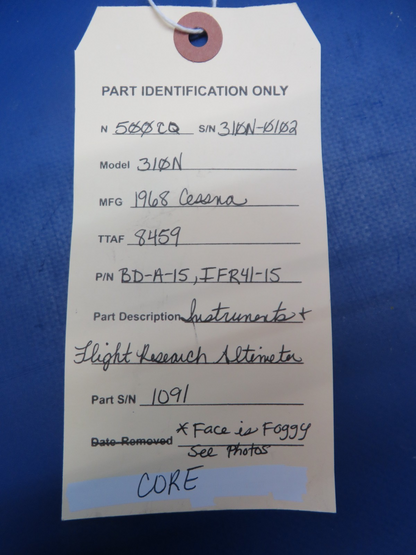 PART IDENTIFICATION ONLY
N 500CQ S/N 310N-0102
Model 310N
MFG 1968 Cessna
TTAF 8459
P/N BD-A-15, IFR41-15
Part Description Instruments +
Flight Research Altimeter
Part S/N 1091
Date Removed * Face is Foggy
See Photos
CORE